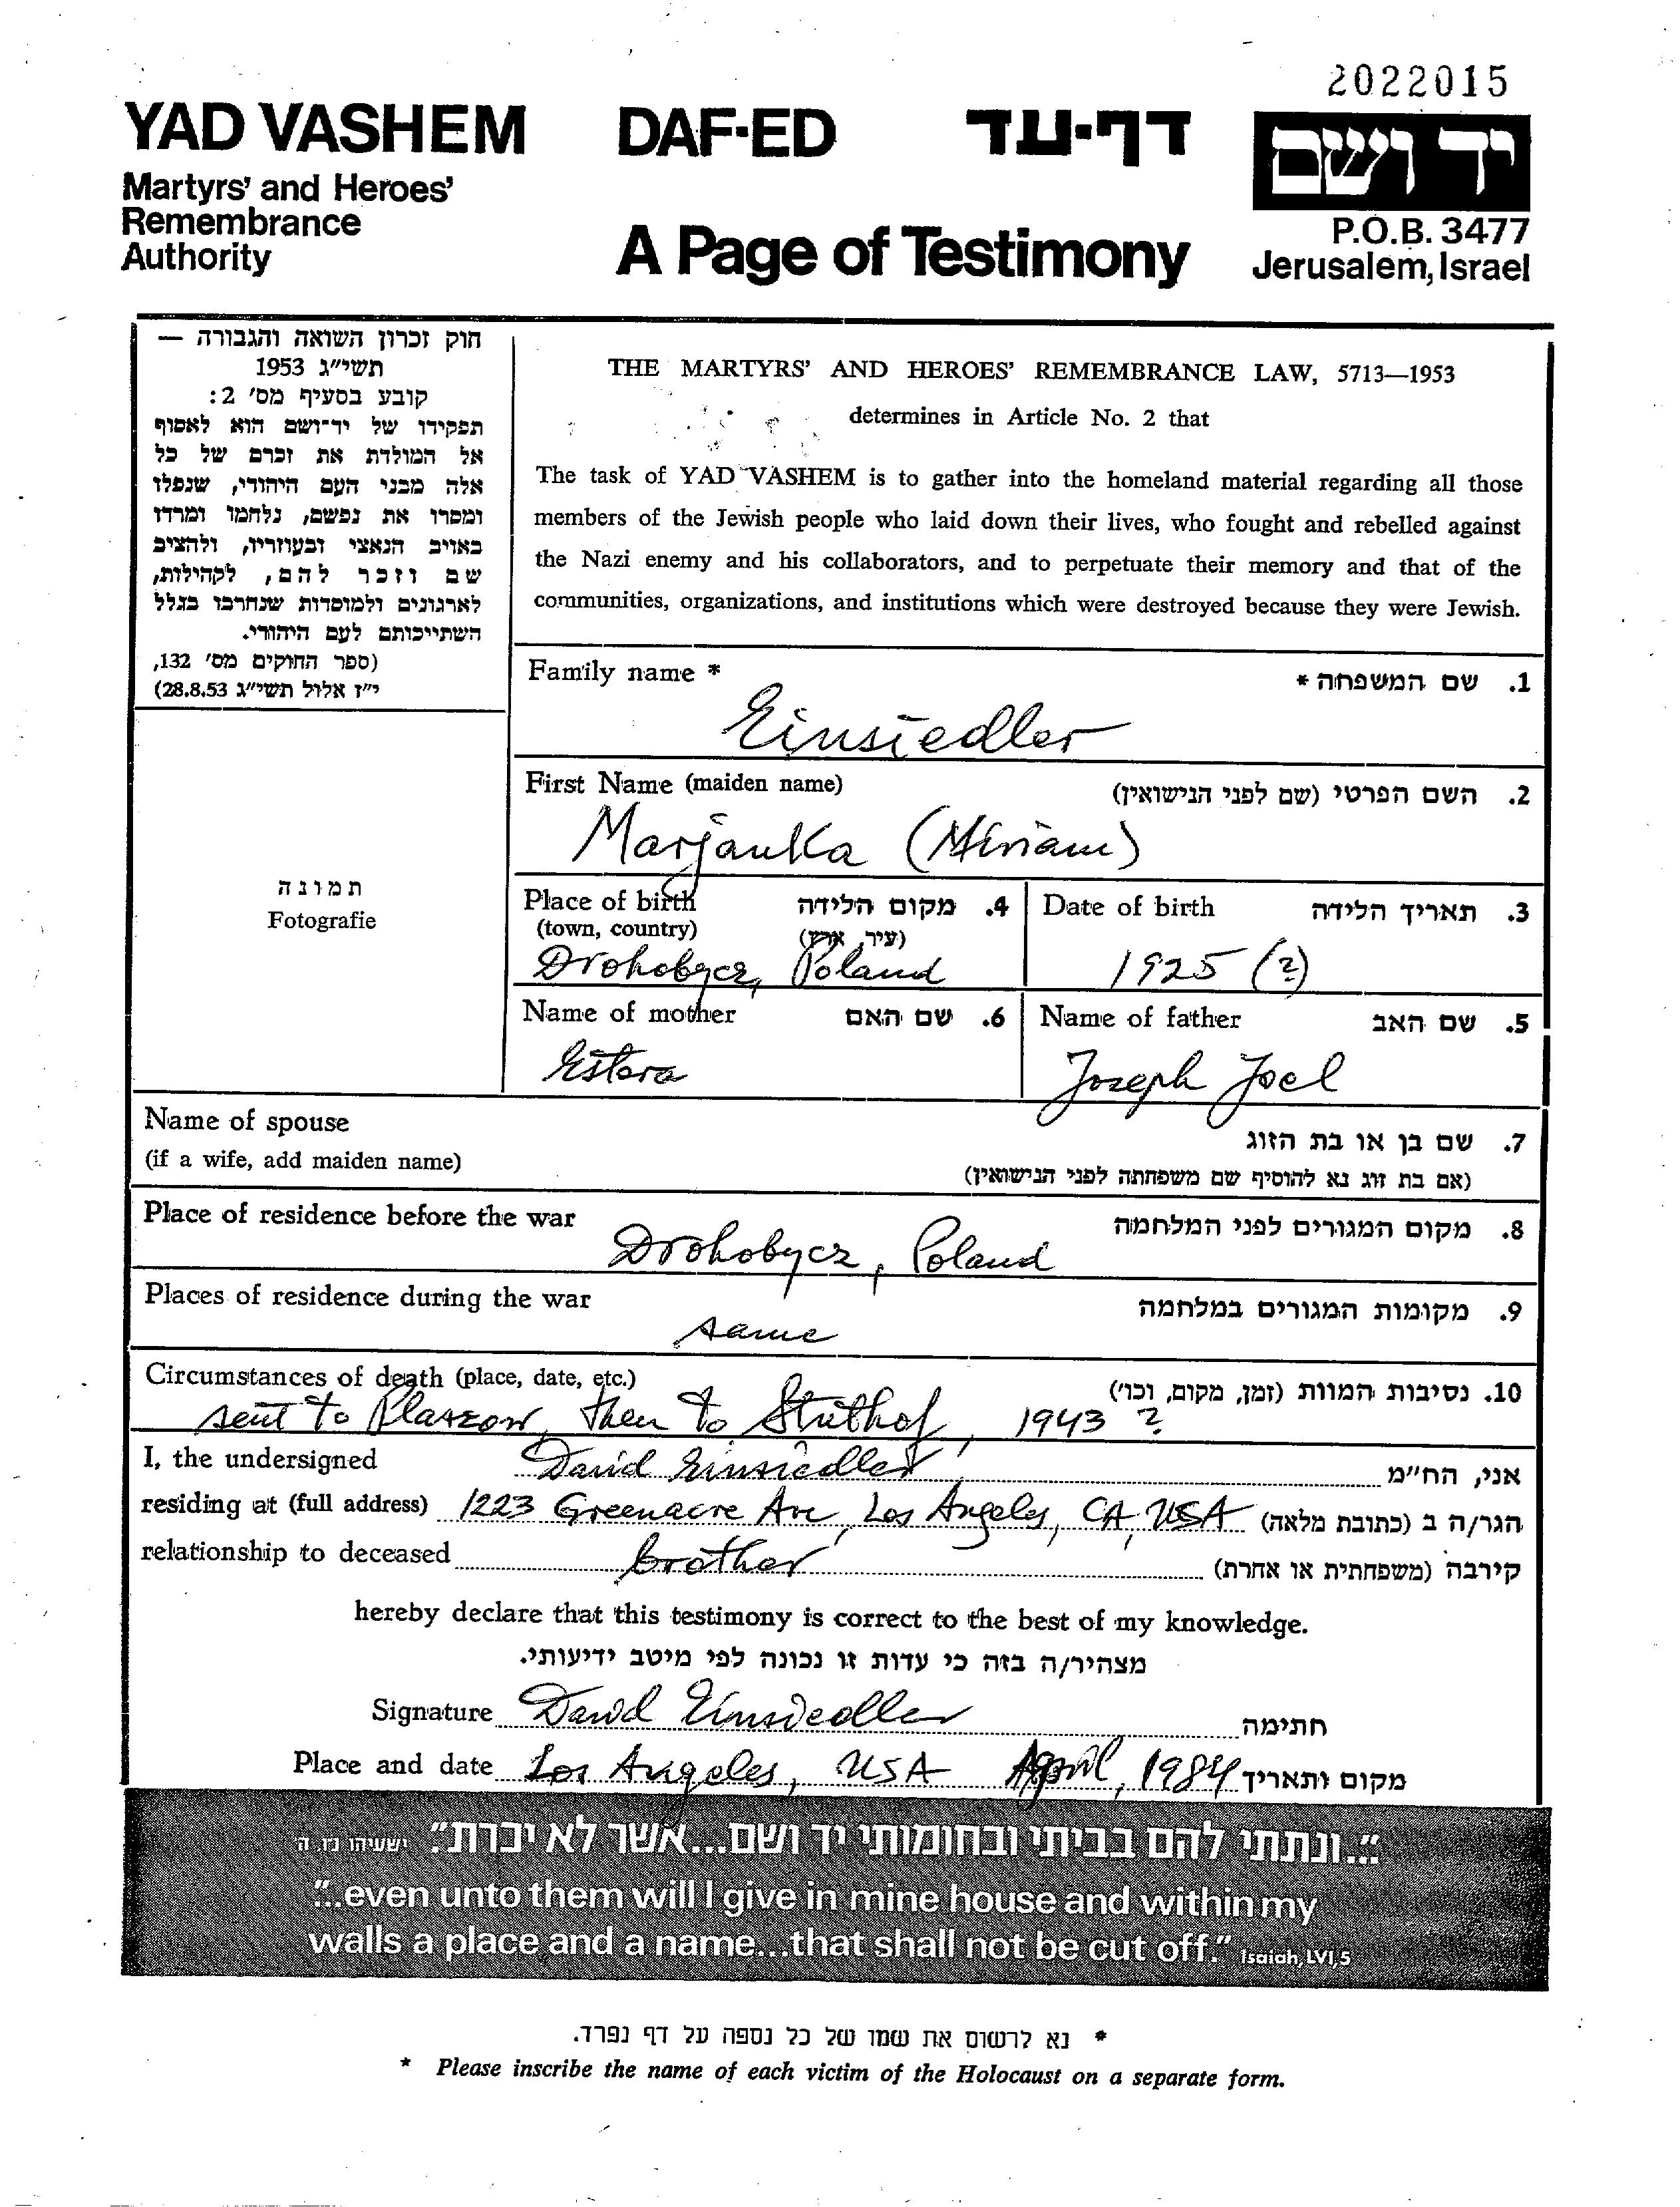 2022015
YAD VASHEM DAF-ED דף-עד יד ושם
Martyrs' and Heroes'
Remembrance
Authority
A Page of Testimony
P.O.B. 3477
Jerusalem, Israel
חוק זכרון השואה והגבורה —
תשי"ג 1953
קובע בסעיף מס' 2:
תפקידו של יד-ושם הוא לאסוף
אל המולדת את זכרם של כל
אלה מבני העם היהודי, שנפלו
ומסרו את נפשם, נלחמו ומרדו
באויב הנאצי ובעוזריו, ולהציב
שם וזכר להם, לקהילות,
לארגונים ולמוסדות שנחרבו בגלל
השתייכותם לעם היהודי.
(ספר החוקים מס' 132,
י"ז אלול תשי"ג 28.8.53)
תמונה
Fotografie
THE MARTYRS' AND HEROES' REMEMBRANCE LAW, 5713—1953
determines in Article No. 2 that
The task of YAD VASHEM is to gather into the homeland material regarding all those
members of the Jewish people who laid down their lives, who fought and rebelled against
the Nazi enemy and his collaborators, and to perpetuate their memory and that of the
communities, organizations, and institutions which were destroyed because they were Jewish.
Family name * 1. שם המשפחה *
Einsiedler
First Name (maiden name) 2. השם הפרטי (שם לפני הנישואין)
Marjanka (Miriam)
Place of birth 4. מקום הלידה
(town, country) (עיר, ארץ)
Drohobycz, Poland
Date of birth 3. תאריך הלידה
1925 (?)
Name of mother 6. שם האם
Estera
Name of father 5. שם האב
Joseph Joel
Name of spouse 7. שם בן או בת הזוג
(if a wife, add maiden name) (אם בת זוג נא להוסיף שם משפחתה לפני הנישואין)
Place of residence before the war 8. מקום המגורים לפני המלחמה
Drohobycz, Poland
Places of residence during the war 9. מקומות המגורים במלחמה
same
Circumstances of death (place, date, etc.) 10. נסיבות המוות (זמן, מקום, וכו')
sent to Plaszow, then to Stuthof, 1943 ?
I, the undersigned David Einsiedler אני, הח"מ
residing at (full address) 1223 Greenacre Ave, Los Angeles, CA, USA הגר/ה ב (כתובת מלאה)
relationship to deceased brother קירבה (משפחתית או אחרת)
hereby declare that this testimony is correct to the best of my knowledge.
מצהיר/ה בזה כי עדות זו נכונה לפי מיטב ידיעותי.
Signature David Einsiedler חתימה
Place and date Los Angeles, USA April, 1984 מקום ותאריך
"...ונתתי להם בביתי ובחומותי יד ושם...אשר לא יכרת" ישעיהו נו, ה
"...even unto them will I give in mine house and within my
walls a place and a name...that shall not be cut off." Isaiah, LVI,5
* נא לרשום את שמו של כל נספה על דף נפרד.
* Please inscribe the name of each victim of the Holocaust on a separate form.